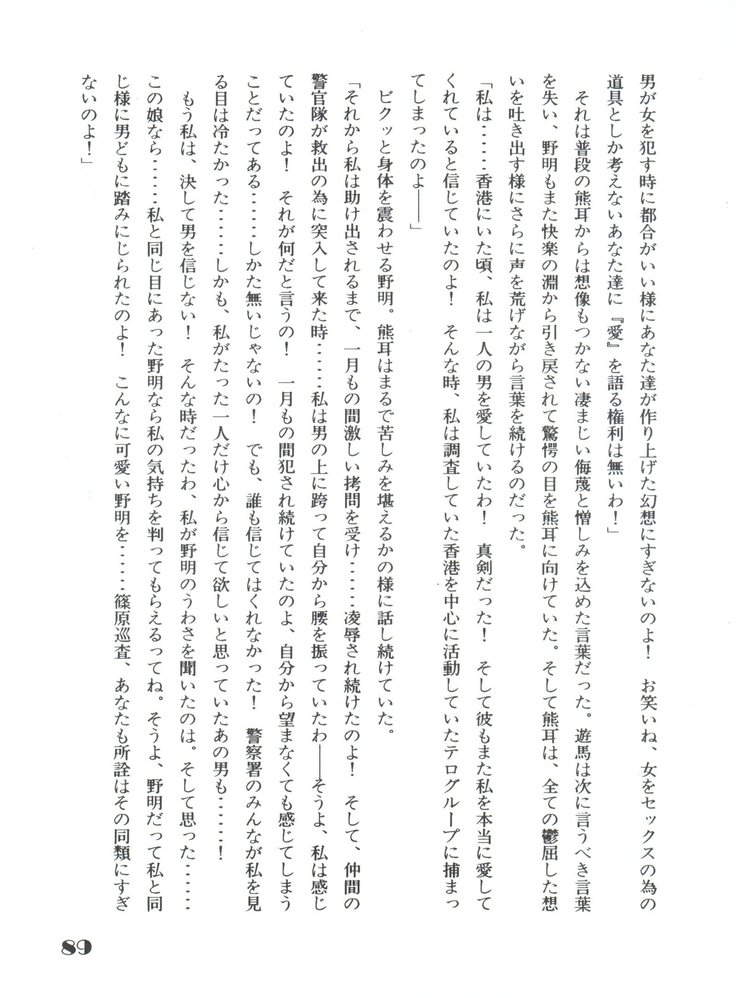 男が女を犯す時に都合がいい様にあなた達が作り上げた幻想にすぎないのよ！　お笑いね、女をセックスの為の
道具としか考えないあなた達に『愛』を語る権利は無いわ！」
　それは普段の熊耳からは想像もつかない凄まじい侮蔑と憎しみを込めた言葉だった。遊馬は次に言うべき言葉
を失い、野明もまた快楽の淵から引き戻されて驚愕の目を熊耳に向けていた。そして熊耳は、全ての鬱屈した想
いを吐き出す様にさらに声を荒げながら言葉を続けるのだった。
「私は‥‥‥香港にいた頃、私は一人の男を愛していたわ！　真剣だった！　そして彼もまた私を本当に愛して
くれていると信じていたのよ！　そんな時、私は調査していた香港を中心に活動していたテログループに捕まっ
てしまったのよ――」
　ビクッと身体を震わせる野明。熊耳はまるで苦しみを堪えるかの様に話し続けていた。
「それから私は助け出されるまで、一月もの間激しい拷問を受け‥‥‥凌辱され続けたのよ！　そして、仲間の
警官隊が救出の為に突入して来た時‥‥‥私は男の上に跨って自分から腰を振っていたわ――そうよ、私は感じ
ていたのよ！　それが何だと言うの！　一月もの間犯され続けていたのよ、自分から望まなくても感じてしまう
ことだってある‥‥‥しかた無いじゃないの！　でも、誰も信じてはくれなかった！　警察署のみんなが私を見
る目は冷たかった‥‥‥しかも、私がたった一人だけ心から信じて欲しいと思っていたあの男も‥‥‥！
　もう私は、決して男を信じない！　そんな時だったわ、私が野明のうわさを聞いたのは。そして思った‥‥‥
この娘なら‥‥‥私と同じ目にあった野明なら私の気持ちを判ってもらえるってね。そうよ、野明だって私と同
じ様に男どもに踏みにじられたのよ！　こんなに可愛い野明を‥‥‥篠原巡査、あなたも所詮はその同類にすぎ
ないのよ！」
89